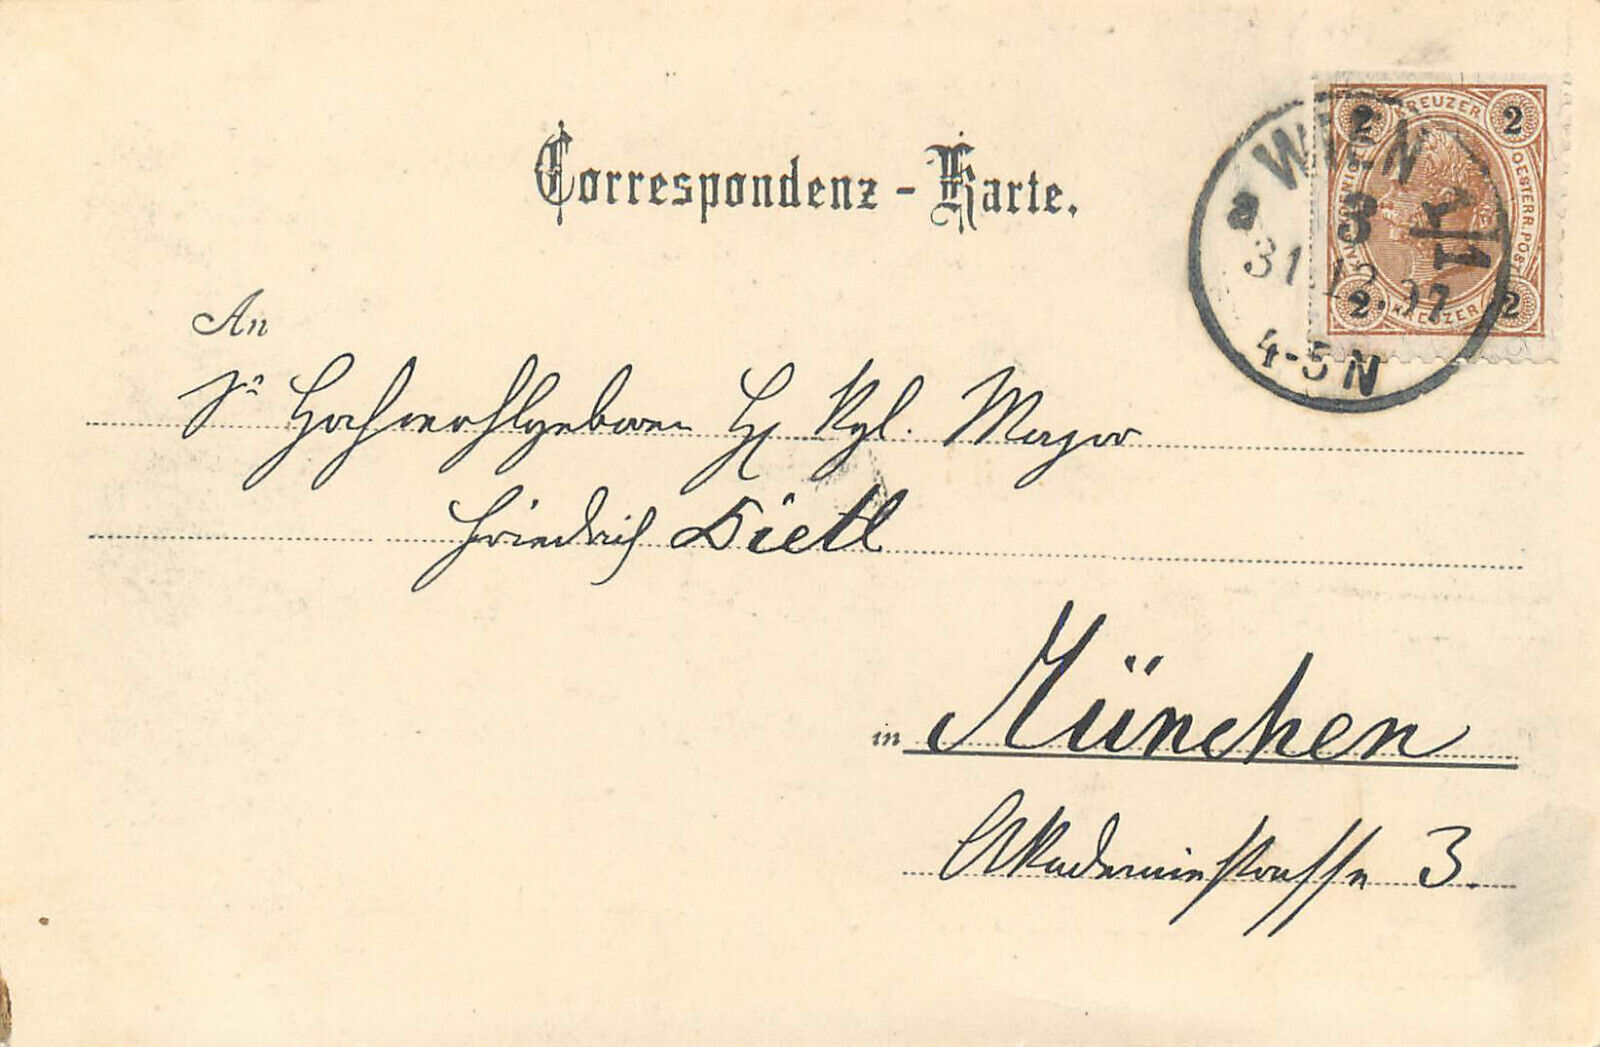 Correspondenz-Karte.
2 KREUZER 2
KAIS. KÖNIGL. OESTERR. POST
2 KREUZER 2
WIEN
a 3 1/1
31 12.97
4-5N
An
Sr Hochwohlgeboren H. Kgl. Major
Friedrich Dietl
in München
Akademiestrasse 3.